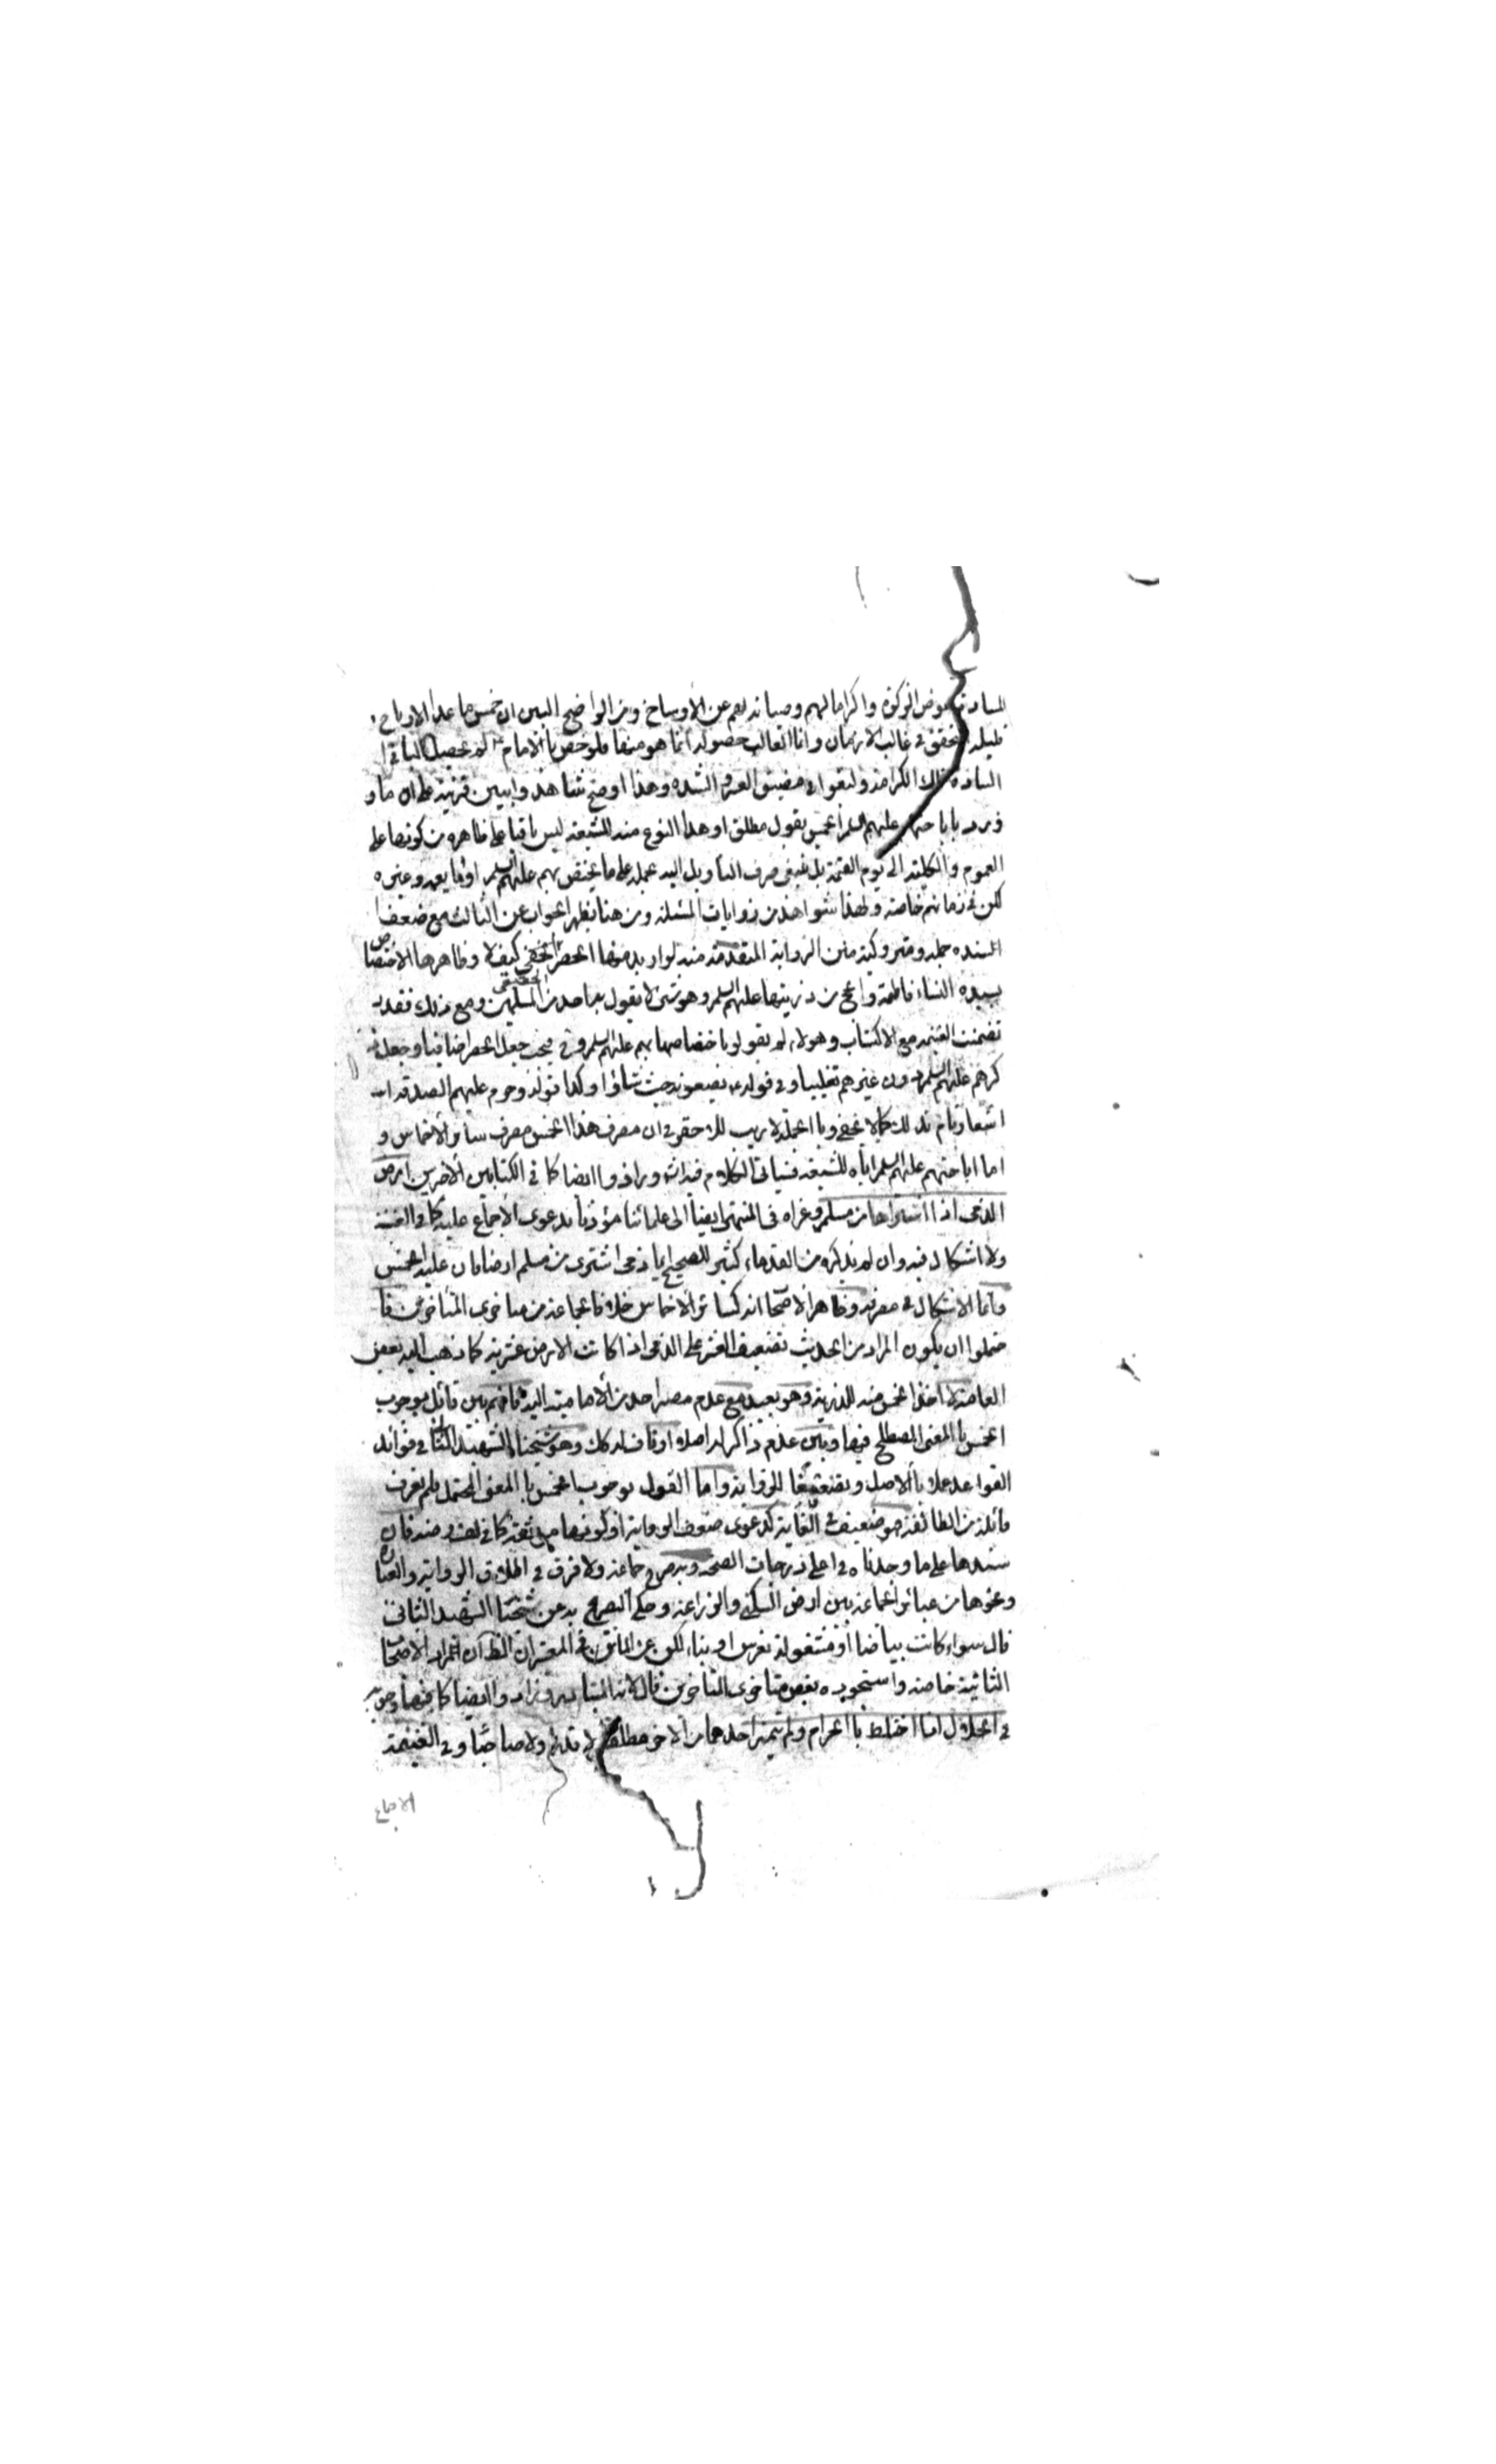 السادة عوض الزكوة واكراما لهم وصيانة لهم عن الأوساخ ومن الواضح البين ان خمس ما عدا الارباح
قليله التحقق في غالب الازمان وانما الغالب حصوله انما هو منها فلو خص بالامام لم يحصل الباقي
السادة تلك الكرامة ولبقوا في مضيق العسر والشده وهذا اوضح شاهد وابين قرينة على ان ما و
ورد باباحتهم عليهم السلم الخمس بقول مطلق او هذا النوع منه للشيعة ليس باقيا على ظاهره من كونها على
العموم والكلية الى يوم القيمة بل ينبغي صرف التاويل اليه بحمله على ما يختص بهم عليهم السلم او ما يعمه وغيره
لكن في زمانهم خاصة ولهذا شواهد من روايات المسئلة ومن هنا يظهر الجواب عن الثالث مع ضعف
السند جملة ومتروكية متن الرواية المتقدمة منه لو اريد منها الحصر الحقيقي كيف لا وظاهرها الاختصاص
بسيدة النساء فاطمة والحجج من ذريتها عليهم السلم وهو شيء لا يقول به احد من المسلمين ومع ذلك فقد
تضمنت الغنيمة مع الاكتساب وهولاء لم يقولوا باختصاصها بهم عليهم السلم فيجب جعل الحصر اضافيا وجعل
ذكرهم عليهم السلم دون غيرهم تغليبا وفي قوله يضعونه حيث شاؤا وكذا قوله وحرم عليهم الصدقة
اشعار تام بذلك كما لا يخفى وبالجملة لا ريب للاحقر في ان مصرف هذا الخمس مصرف سائر الأخماس و
اما اباحتهم عليهم السلم اياه للشيعة فسياتي الكلام فيه انشه وزادوا ايضا كما في الكتابين الأخرين ارض
الذمي اذا اشتراها من مسلم وعزاه في المنتهى ايضا الى علمائنا مؤذنا بدعوى الأجماع عليه كما في الغنية
ولا اشكال فيه وان لم يذكره من القدماء كثير للصحيح ايما ذمي اشترى من مسلم ارضا فان عليه الخمس
وانما الاشكال في مصرفه وظاهر الاصحاب انه كسائر الاخماس خلافا لجماعة من متاخري المتأخرين فا
حتملوا ان يكون المراد من الحديث تضعيف العشر على الذمي اذا كانت الارض عشرية كما ذهب اليه بعض
العامة لا اخذ الخمس منه للذرية وهو بعيد مع عدم مصير احد من الأمامية اليه فانهم بين قائل بوجوب
الخمس بالمعنى المصطلح فيها وبين عدم ذاكر له اصلا او قائل كك وهو شيخنا الشهيد الثاني في فوائد
القواعد عملا بالاصل وتضعيفا للرواية واما القول بوجوب الخمس بالمعنى المحتمل فلم نعرف
قائله من الطائفة فهو ضعيف في الغاية كدعوى ضعف الرواية او كونها موثقة كما في لف وضه فان
سندها على ما وجدناه في اعلى درجات الصحة وبه صرح جماعة ولا فرق في اطلاق الرواية والعبارة
ونحوها من عبائر الجماعة بين ارض السكنى والزراعة وحكي التصريح به عن شيخنا الشهيد الثاني
قال سواء كانت بياضا أو مشغولة بغرس او بناء لكن عن الفاضل في المعتبر ان الظ ان مراد الاصحاب
الثانية خاصة واستجوده بعض متاخري المتاخرين قال لانه المتبادر وزادوا ايضا كما فيهما وجوبه
في الحلال اذا اختلط بالحرام ولم يتميز احدهما من الاخر مطلقا لا قدرا ولا صاحبا وفي الغنيمة
الاجماع